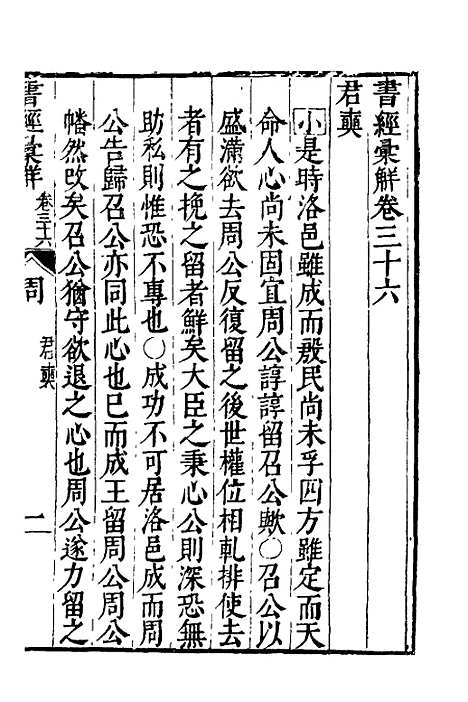 書經彚解卷三十六
君奭
小是時洛邑雖成而殷民尚未孚四方雖定而天
命人心尚未固宜周公諄諄留召公歟○召公以
盛滿欲去周公反復留之後世權位相軋排使去
者有之挽之留者鮮矣大臣之秉心公則深恐無
助私則惟恐不專也○成功不可居洛邑成而周
公告歸召公亦同此心也已而成王留周公周公
幡然改矣召公猶守欲退之心也周公遂力留之
書經彚解 卷三十六 周 君奭 二